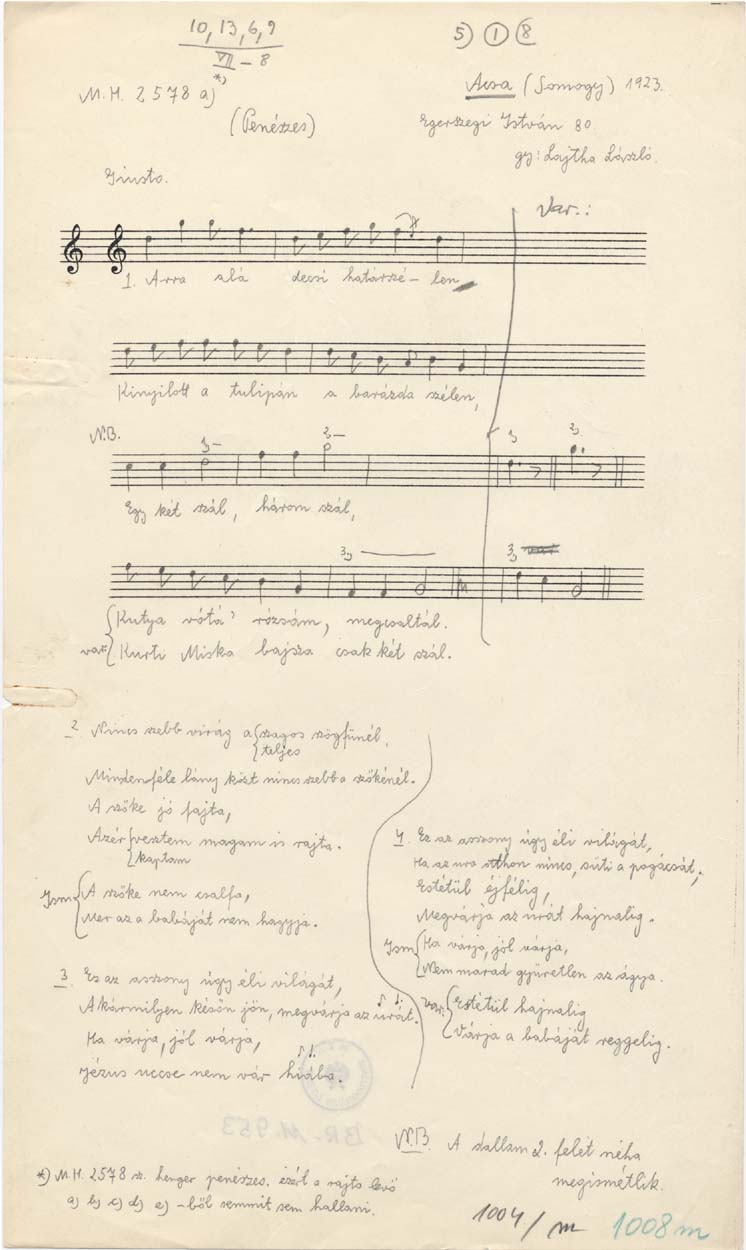 10, 13, 6, 9
VII – 8
*)
5) 1 8
M.H. 2578 a)
Acsa (Somogy) 1923.
(Penészes)
Egerszegi István 80
gy: Lajtha László.
Giusto.
Var.:
1. Arra alá decsi határszé – len
Kinyilott a tulipán a barázda szélen,
N.B.
1) –
2) –
1)
2)
Egy két szál, három szál,
3)
3)
Kutya vótá' rózsám, megcsaltál.
var: Kurti Miska bajsza csak két szál.
2 Nincs szebb virág a szagos szögfünél,
teljes
Mindenféle lány közt nincs szebb a szőkénél.
A szőke jó fajta,
Azér vesztem magam is rajta.
kaptam
Ism A szőke nem csalfa,
Mer az a babáját nem hagyja.
3 Ez az asszony úgy éli világát,
Akármilyen későn jön, megvárja az urát.
Ha várja, jól várja,
Jézus uccse nem vár hiába.
4. Ez az asszony úgy éli világát,
Ha az ura otthon nincs, süti a pogácsát,
Estétül éjfélig,
Megvárja az urát hajnalig.
Ism Ha várja, jól várja,
Nem marad gyüretlen az ágya.
var: Estétül hajnalig
Várja a babáját reggelig.
BR. M. 953
N.B. A dallam 2. felét néha
megismétlik.
*) M.H. 2578 sz. henger penészes. ezért a rajta levő
a) b) c) d) e) -ből semmit sem hallani.
1004/m
1008 m